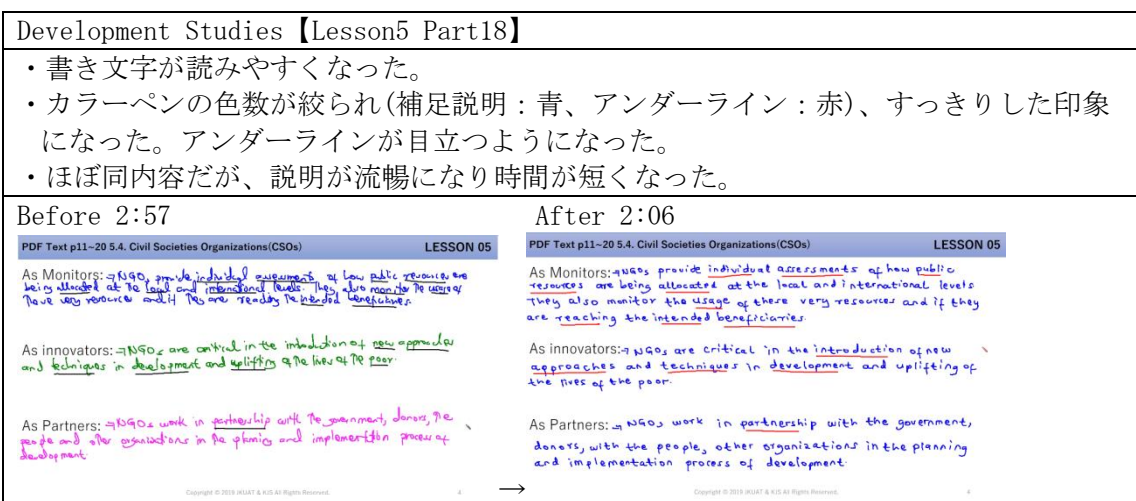 Development Studies【Lesson5 Part18】
・書き文字が読みやすくなった。
・カラーペンの色数が絞られ(補足説明：青、アンダーライン：赤)、すっきりした印象
になった。アンダーラインが目立つようになった。
・ほぼ同内容だが、説明が流暢になり時間が短くなった。
Before 2:57
PDF Text p11~20 5.4. Civil Societies Organizations(CSOs) LESSON 05
As Monitors: →NGO, provide individual assessments of how public resources are
being allocated at the local and international levels. They also monitor the usage of
these very resources and if they are reaching the intended beneficiaries.
As innovators: →NGOs are critical in the introduction of new approaches
and techniques in development and uplifting of the lives of the poor.
As Partners: →NGOs work in partnership with the government, donors, the
people and other organizations in the planning and implementation process of
development
Copyright © 2019 JKUAT & KJS All Rights Reserved. 4
→
After 2:06
PDF Text p11~20 5.4. Civil Societies Organizations(CSOs) LESSON 05
As Monitors: →NGOs provide individual assessments of how public
resources are being allocated at the local and international levels
They also monitor the usage of these very resources and if they
are reaching the intended beneficiaries.
As innovators: →NGOs are critical in the introduction of new
approaches and techniques in development and uplifting of
the lives of the poor.
As Partners: →NGOs work in partnership with the government,
donors, with the people, other organizations in the planning
and implementation process of development.
Copyright © 2019 JKUAT & KJS All Rights Reserved. 4